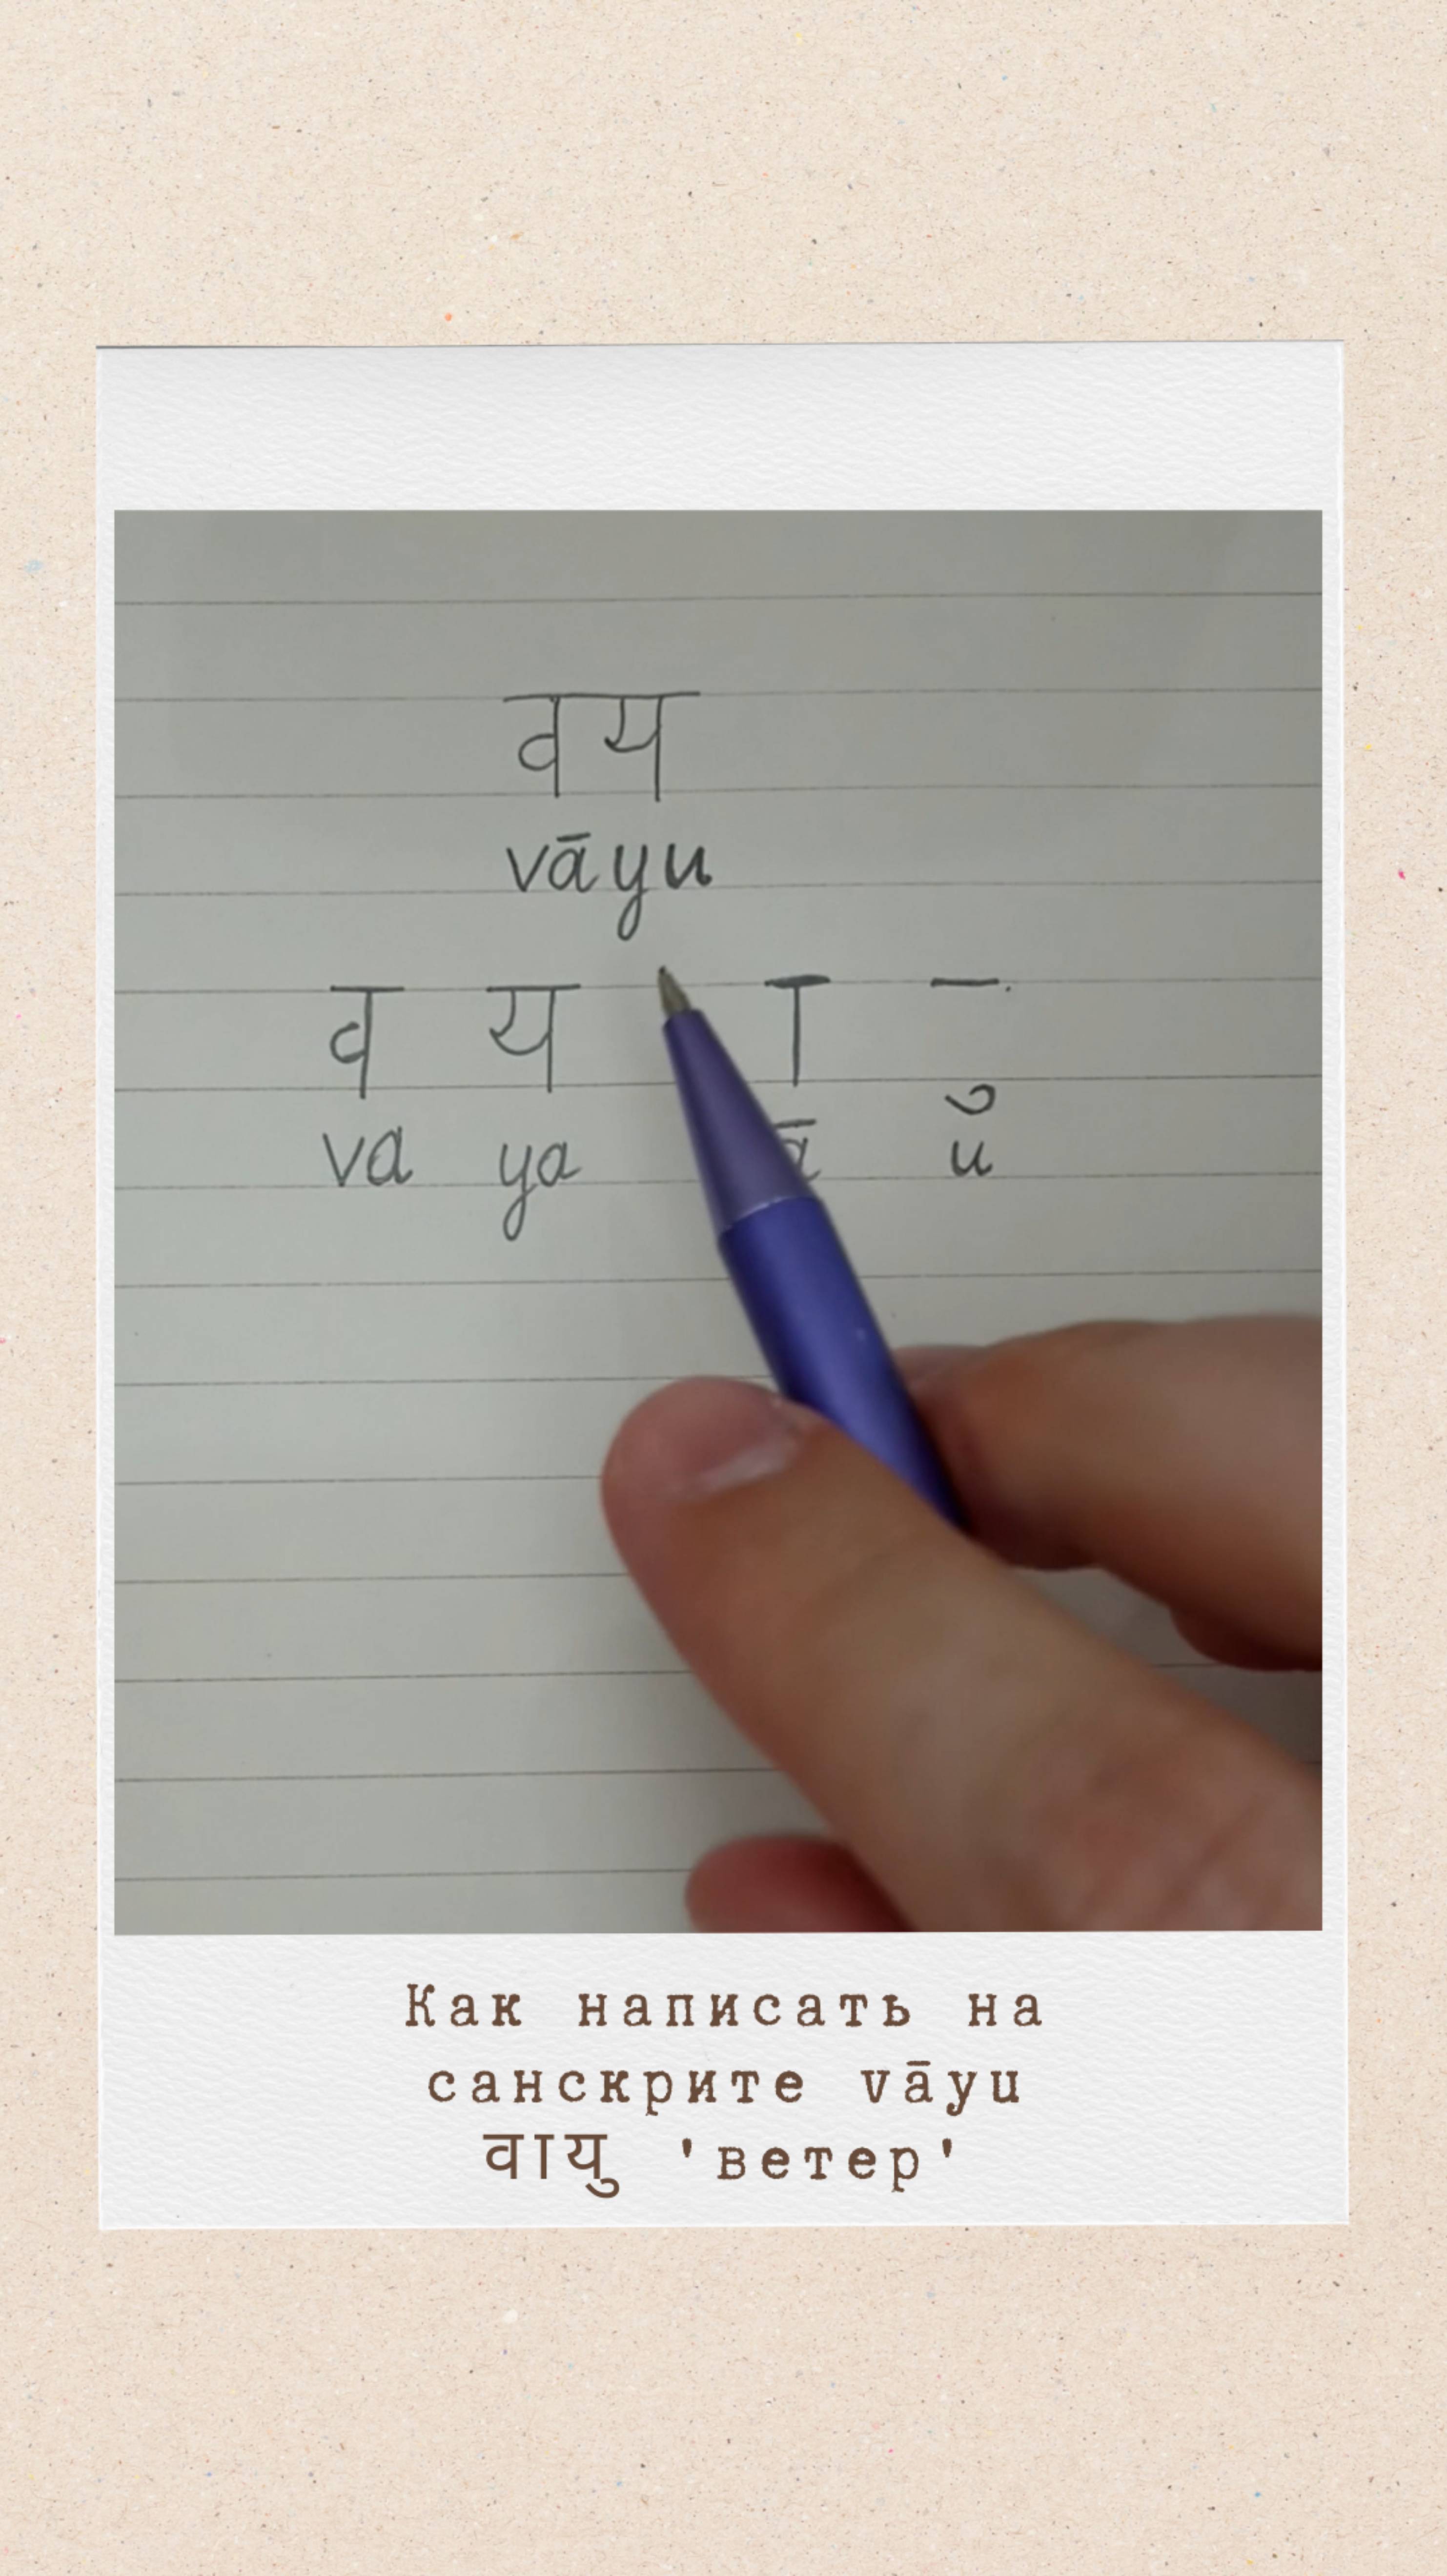 वय
vāyu
व य ा ु
va ya ā u
Как написать на
санскрите vāyu
वायु 'ветер'